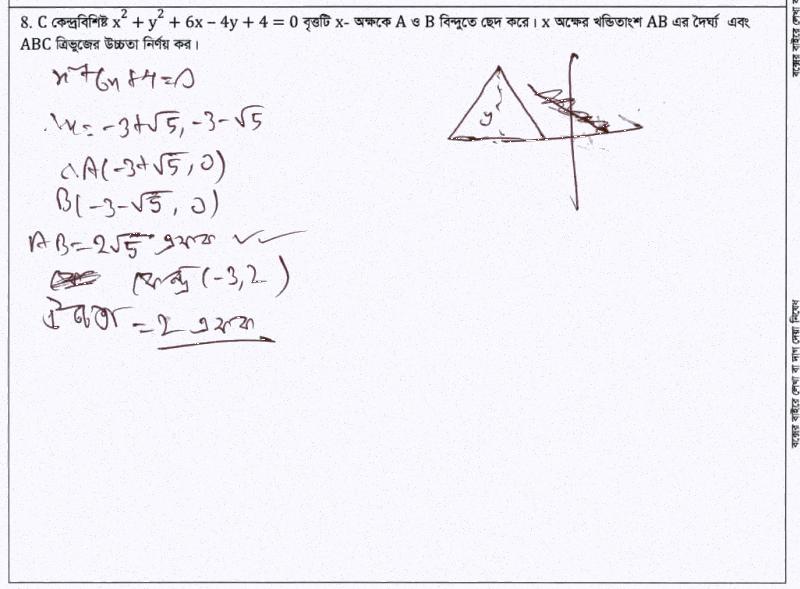 8. C কেন্দ্রবিশিষ্ট x² + y² + 6x − 4y + 4 = 0 বৃত্তটি x- অক্ষকে A ও B বিন্দুতে ছেদ করে। x অক্ষের খন্ডিতাংশ AB এর দৈর্ঘ্য এবং
ABC ত্রিভুজের উচ্চতা নির্ণয় কর।
x²+6x+4=0
∴ x = -3+√5, -3-√5
∴ A(-3+√5, 0)
B(-3-√5, 0)
AB=2√5 একক
কেন্দ্র (-3,2)
উচ্চতা = 2 একক
y
বক্সের বাইরে লেখা বা দাগ দেয়া নিষেধ